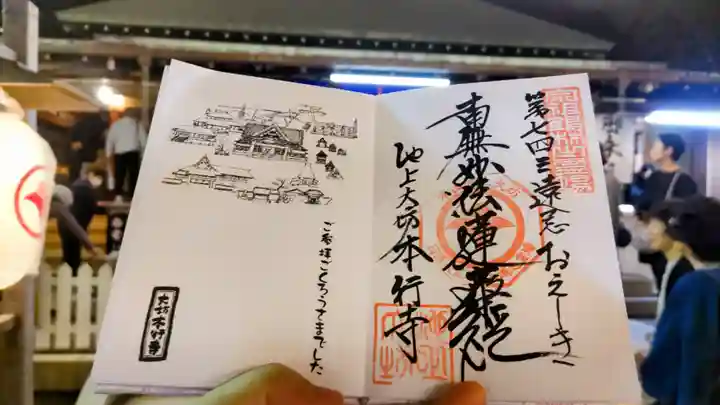 第七四三遠忌おえしき
南無妙法蓮華経
池上大坊本行寺
ご参拝ごくろうさまでした
大坊本行寺